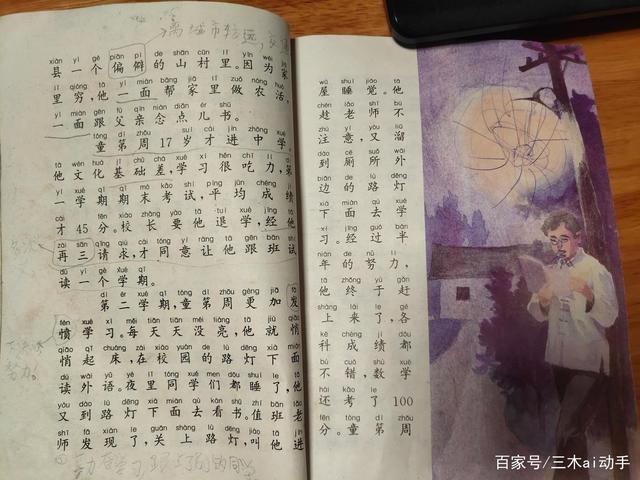 离城市较远,交通
xiàn yí gè piān pì de shān cūn lǐ yīn wèi jiā
县一个偏僻的山村里。因为家
lǐ qióng tā yí miàn bāng jiā lǐ zuò nóng huó
里穷,他一面帮家里做农活,
yí miàn gēn fù qīn niàn diǎn ér shū
一面跟父亲念点儿书。
tóng dì zhōu suì cái jìn zhōng xué
童第周17岁才进中学。
tā wén huà jī chǔ chā xué xí hěn chī lì dì
他文化基础差,学习很吃力,第
yì xué qī qī mò kǎo shì píng jūn chéng jì
一学期期末考试,平均成绩
cái fēn xiào zhǎng yào tā tuì xué jīng tā
才45分。校长要他退学,经他
zài sān qǐng qiú cái tóng yì ràng tā gēn bān shì
再三请求,才同意让他跟班试
dú yí gè xué qī
读一个学期。
dì èr xué qī tóng dì zhōu gèng jiā fā
第二学期,童第周更加发
fèn xué xí měi tiān tiān méi liàng tā jiù qiāo
愤学习。每天天没亮,他就悄
qiāo qǐ chuáng zài xiào yuán de lù dēng xià miàn
悄起床,在校园的路灯下面
dú wài yǔ yè lǐ tóng xué men dōu shuì le tā
读外语。夜里同学们都睡了,他
yòu dào lù dēng xià miàn qù kàn shū zhí bān lǎo
又到路灯下面去看书。值班老
shī fā xiàn le guān shàng lù dēng jiào tā jìn
师发现了,关上路灯,叫他进
wū shuì jiào tā
屋睡觉。他
chèn lǎo shī bú
趁老师不
zhù yì yòu liū
注意,又溜
dào cè suǒ wài
到厕所外
biān de lù dēng
边的路灯
xià miàn qù xué
下面去学
xí jīng guò bàn
习。经过半
nián de nǔ lì
年的努力,
tā zhōng yú gǎn
他终于赶
shàng lái le gè
上来了,各
kē chéng jì dōu
科成绩都
bú cuò shù xué
不错,数学
hái kǎo le
还考了100
fēn tóng dì zhōu
分。童第周
百家号/三木ai动手